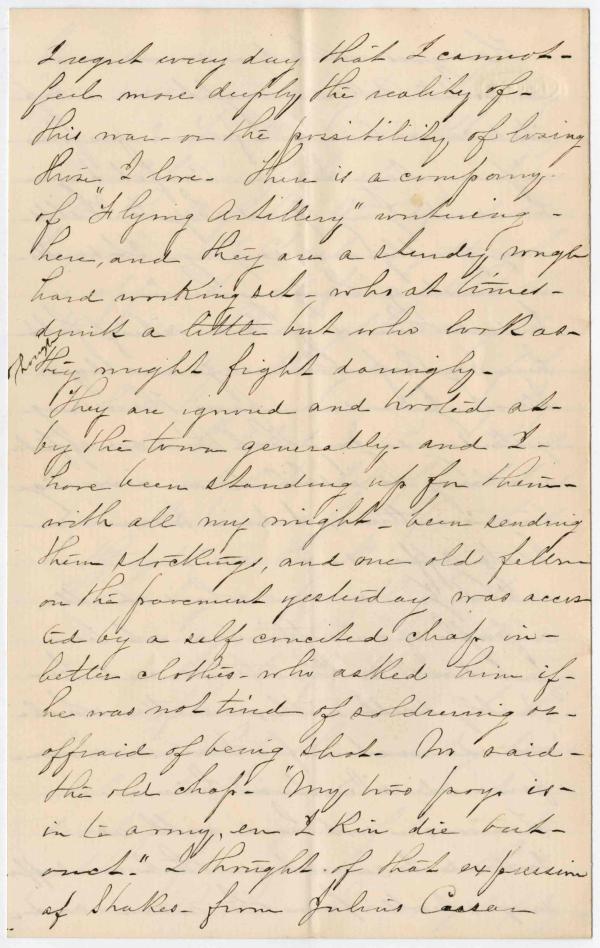 I regret every day that I cannot-
feel more deeply the reality of-
this war - or the possibility of losing
those I love - There is a company
of "Flying Artillery" wintering -
here, and they are a sturdy rough
hard working set - who at times -
drink a little but who look as -
though they might fight daringly -
They are ignored and hooted at -
by the town generally - and I -
have been standing up for them -
with all my might - been sending
them stockings, and one old fellow
on the pavement yesterday was accos
ted by a self concited chap in -
better clothes - who asked him if -
he was not tired of soldiering or -
affraid of being shot - No said -
the old chap - "My two poys is -
in te army, en I kin die but -
onct." I thought of that expression
of Shakes - from Julius Caesar